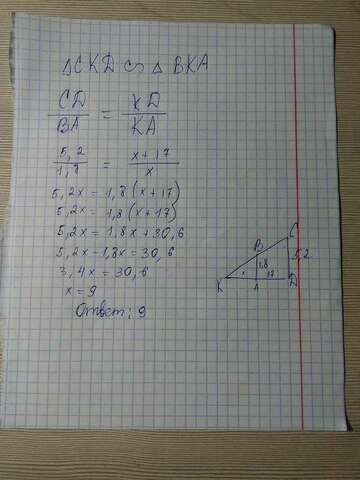 △CKD ∽ △BKA
CD/BA = KD/KA
5,2/1,8 = x+17/x
5,2x = 1,8(x+17)
5,2x = 1,8(x+17)
5,2x = 1,8x + 30,6
5,2x - 1,8x = 30,6
3,4x = 30,6
x = 9
Ответ: 9
C
B
5,2
1,8
K x A 17 D